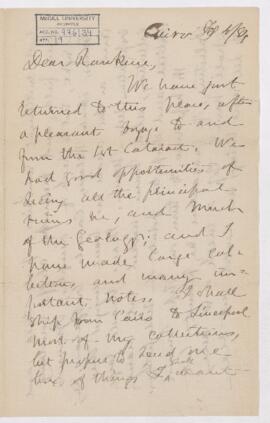 McGILL UNIVERSITY
ARCHIVES
ACC. NO. 976/34
REF. 19
Cairo Feby 4/84
Dear Rankine,
We have just
returned to this place, after
a pleasant voyage to and
from the 1st Cataract. We
had good opportunities of
seeing all the principal
ruins &c, and much
of the Geology; and I
have made large col-
lections, and many im-
portant notes. I shall
ship from Cairo to Liverpool
most of my collections,
but propose to send one
box of things I want